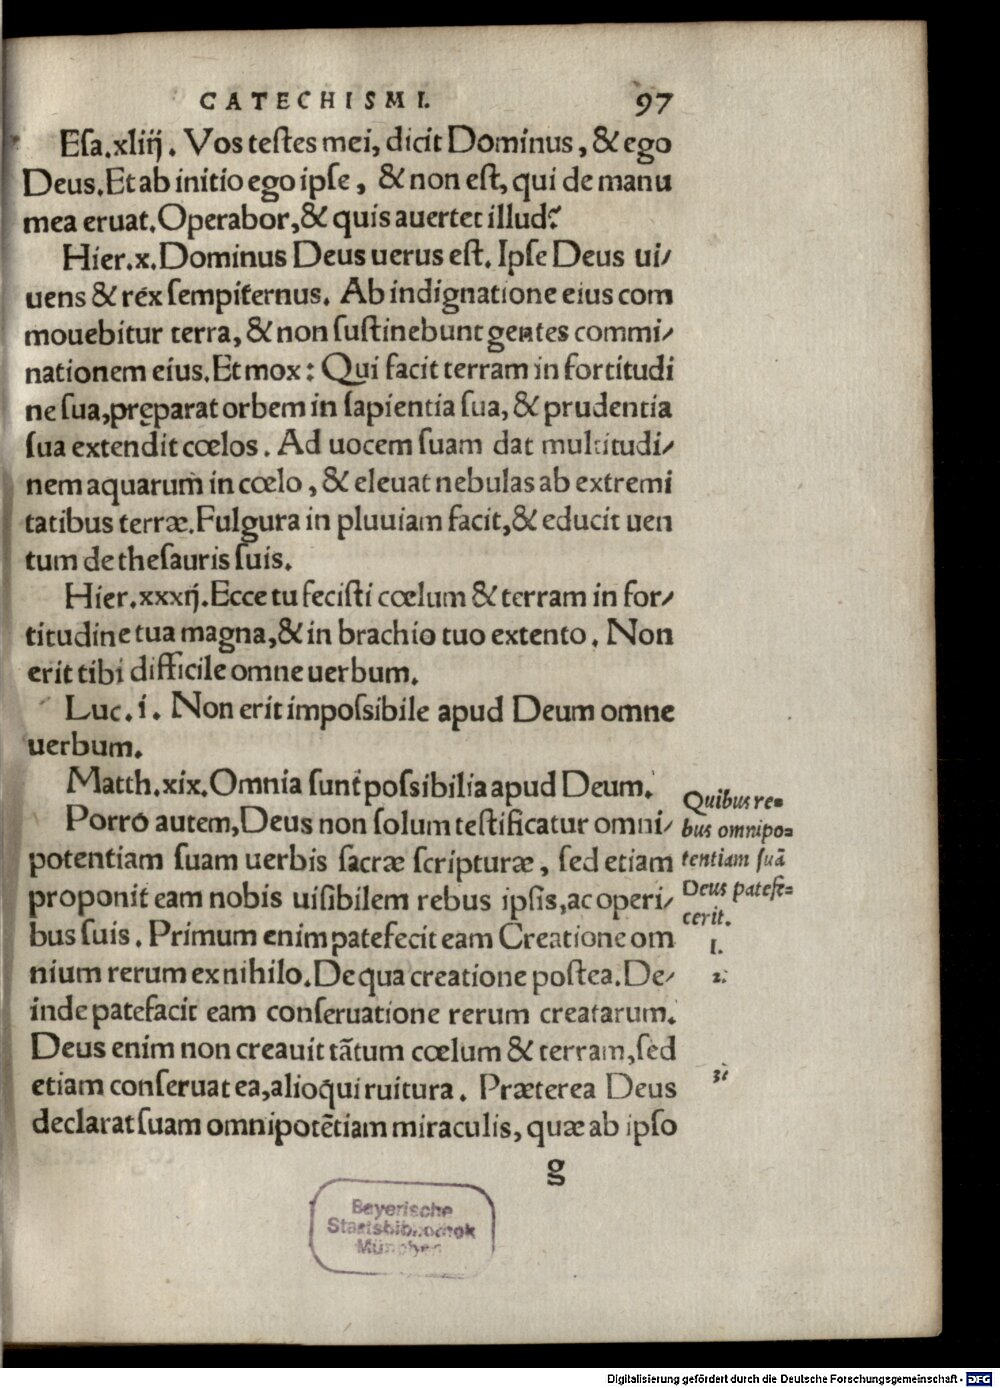 CATECHISMI. 97
Esa.xliij. Vos testes mei, dicit Dominus, & ego
Deus. Et ab initio ego ipse, & non est, qui de manu
mea eruat. Operabor, & quis auertet illud?
Hier.x. Dominus Deus uerus est. Ipse Deus ui/
uens & rex sempiternus. Ab indignatione eius com
mouebitur terra, & non sustinebunt gentes commi/
nationem eius. Et mox: Qui facit terram in fortitudi
ne sua, pręparat orbem in sapientia sua, & prudentia
sua extendit cœlos. Ad uocem suam dat multitudi/
nem aquarum in cœlo, & eleuat nebulas ab extremi
tatibus terræ. Fulgura in pluuiam facit, & educit uen
tum de thesauris suis.
Hier.xxxij. Ecce tu fecisti cœlum & terram in for/
titudine tua magna, & in brachio tuo extento. Non
erit tibi difficile omne uerbum.
Luc.i. Non erit impossibile apud Deum omne
uerbum.
Matth.xix. Omnia sunt possibilia apud Deum.
Porro autem, Deus non solum testificatur omni/
potentiam suam uerbis sacræ scripturæ, sed etiam
proponit eam nobis uisibilem rebus ipsis, ac operi/
bus suis. Primum enim patefecit eam Creatione om
nium rerum ex nihilo. De qua creatione postea. De/
inde patefacit eam conseruatione rerum creatarum.
Deus enim non creauit tãtum cœlum & terram, sed
etiam conseruat ea, alioqui ruitura. Præterea Deus
declarat suam omnipotẽtiam miraculis, quæ ab ipso
g
Quibus re=
bus omnipo=
tentiam suã
Deus patefe=
cerit.
1.
2.
3.
Bayerische
Staatsbibliothek
München
Digitalisierung gefördert durch die Deutsche Forschungsgemeinschaft - DFG